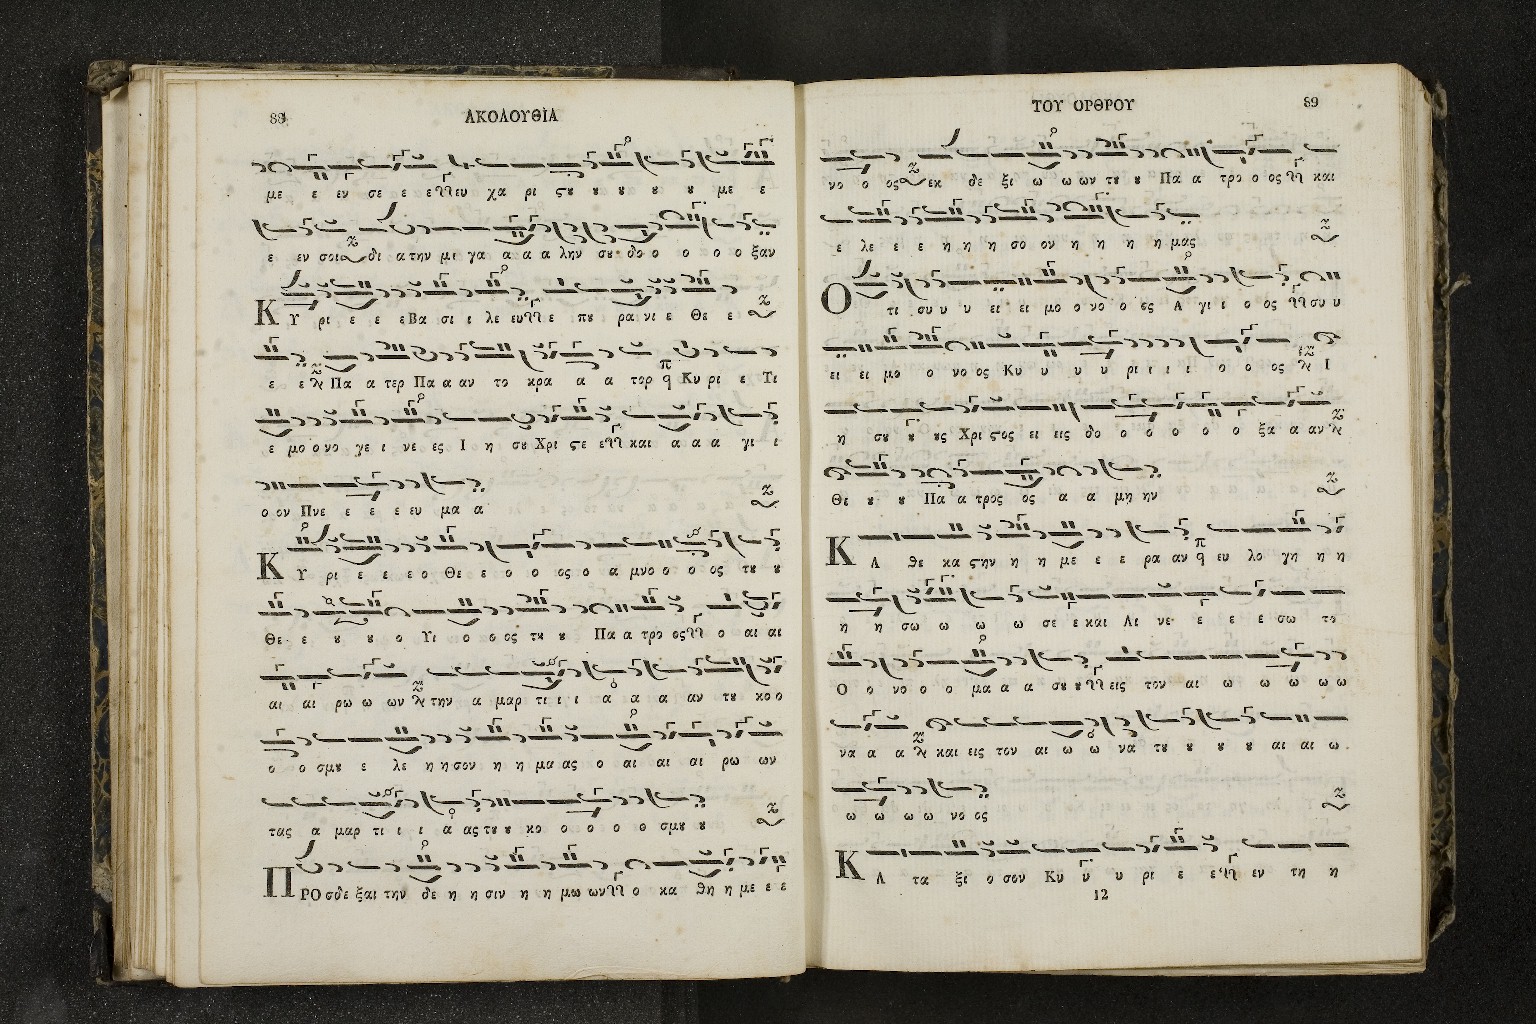 88
ΑΚΟΛΟΥΘΙΑ
με ε εν σε ε ε ευ χα ρι ςȣ ȣ ȣ ȣ ȣ με ε
ε εν σοι δι α την μι γα α α α λην σȣ δο ο ο ο ο ξαν
ΚΥ ρι ε ε ε Βα σι ι λε ευ ε πȣ ρα νι ε Θε ε
ε ε Πα α τερ Πα α αν το κρα α α τορ Κυ ρι ε Τι
ε μο ο νο γε ι νε ες Ι η σȣ Χρι ςε ε και α α α γι ι
ο ον Πνε ε ε ε ευ μα α
ΚΥ ρι ε ε ε ο Θε ε ο ο ος ο α μνο ο ο ος τȣ ȣ
Θε ε ȣ ȣ ο Υι ο ο ος τȣ ȣ Πα α τρο ος ο αι αι
αι αι ρω ω ων την α μαρ τι ι ι α α α αν τȣ κο ο
ο ο σμȣ ε λε η η σον η η μα ας ο αι αι αι ρω ων
τας α μαρ τι ι ι α ας τȣ ȣ κο ο ο ο ο σμȣ ȣ
ΠΡΟσδε ξαι την δε η η σιν η η μω ων ο κα θη η με ε ε
ΤΟΥ ΟΡΘΡΟΥ
89
νο ο ος εκ δε ξι ω ω ων τȣ ȣ Πα α τρο ο ος και
ε λε ε ε η η η σο ον η η η η μας
Ο τι συ υ υ ει ει μο ο νο ο ος Α γι ι ο ος συ υ
ει ει μο ο νο ος Κυ υ υ υ ρι ι ι ι ο ο ος Ι
η σȣ ȣ ȣς Χρι ςος ει εις δο ο ο ο ο ο ξα α αν
Θε ȣ ȣ Πα α τρος ος α α μη ην
ΚΑ θε κα ςην η η με ε ε ρα αν ευ λο γη η η
η η σω ω ω ω σε ε και Αι νε ε ε ε σω το
Ο ο νο ο ο μα α α σȣ ȣ εις τον αι ω ω ω ω ω
να α α και εις τον αι ω ω να τȣ ȣ ȣ ȣ αι αι ω
ω ω ω ω νο ος
ΚΑ τα ξι ο σον Κυ υ υ ρι ε ε εν τη η
12